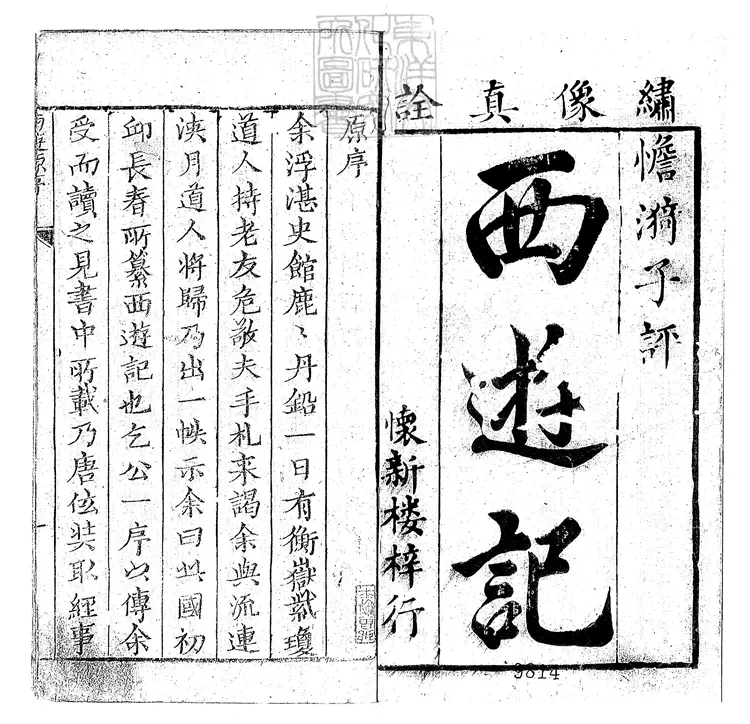 繡像真詮
憺漪子評
西遊記
懷新楼梓行
9814
原序
余浮湛史館鹿〻丹鉛一日有衡嶽紫瓊
道人持老友危敬夫手札来謁余與流連
浹月道人將歸乃出一帙示余曰此國初
邱長春所纂西遊記也乞公一序以傳余
受而讀之見書中所載乃唐伭奘取經事
一